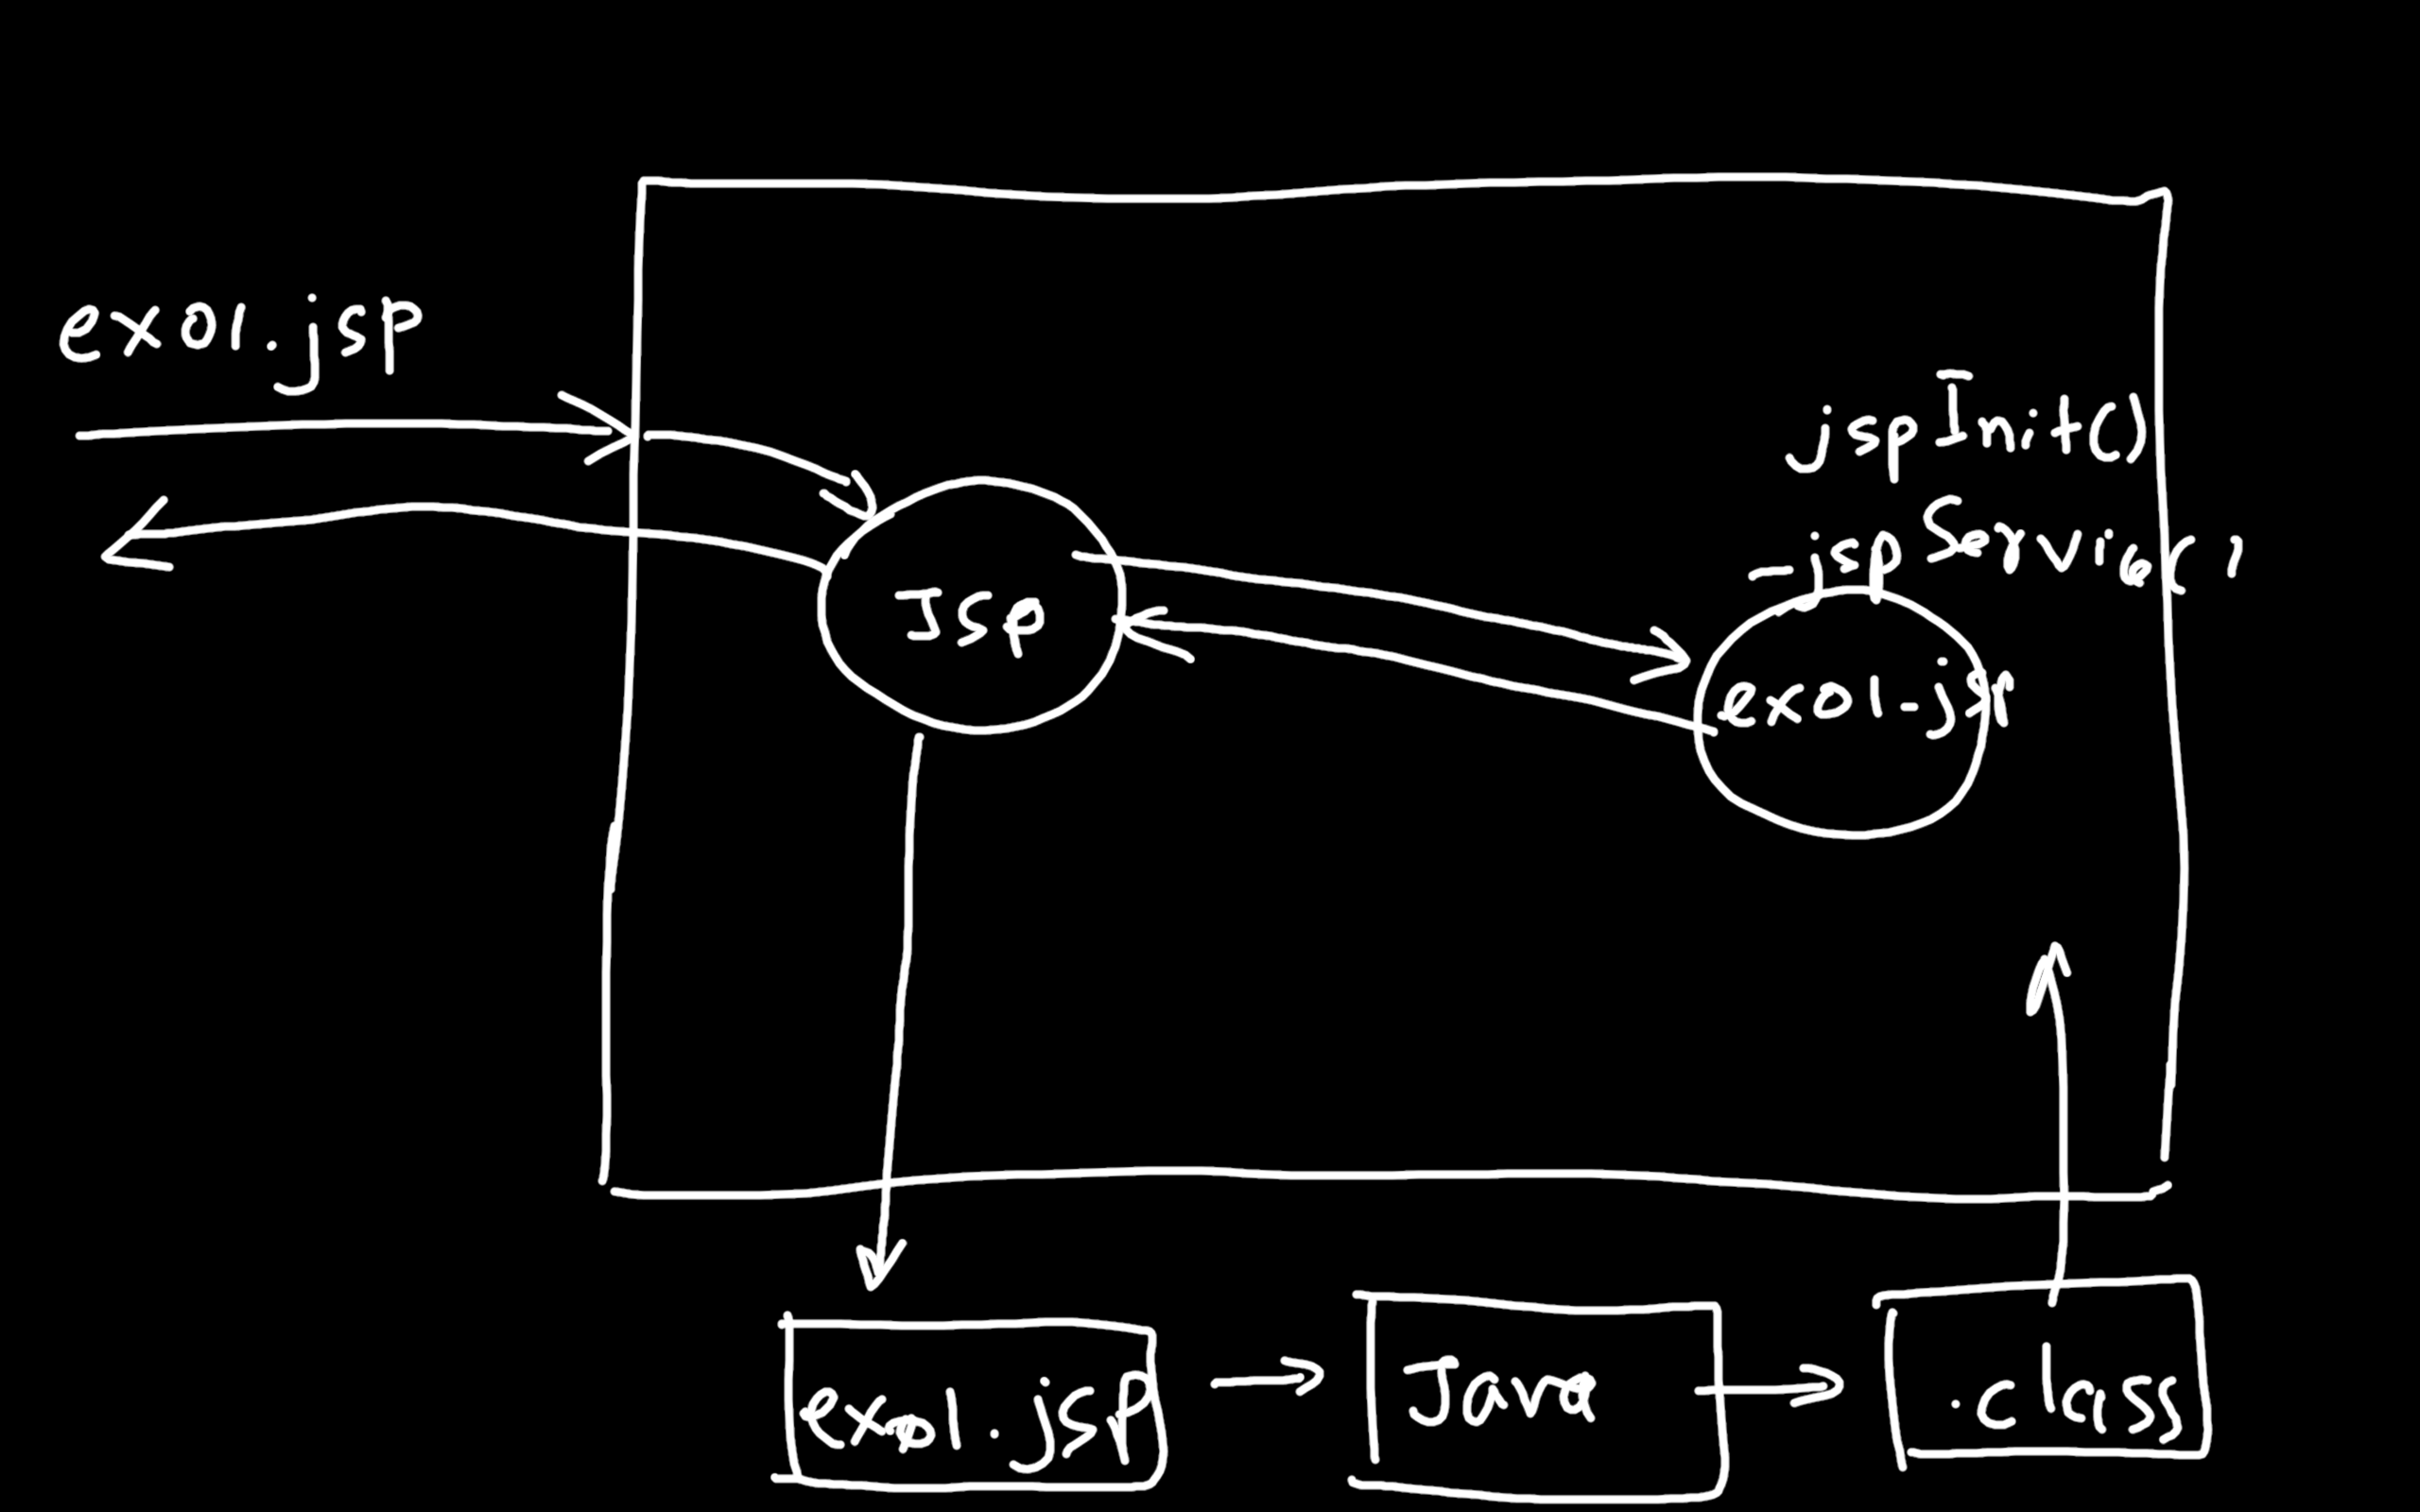 ex01.jsp
jspInit()
_jspService()
JSP
ex01_jsp
ex01.jsp
Java
.class